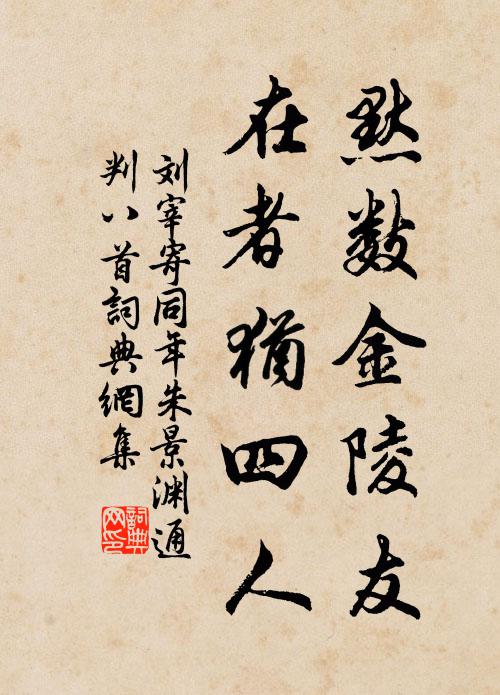 默数金陵友
在者犹四人
刘宰寄同年朱景渊通
判八首詞典網集
詞典
网印